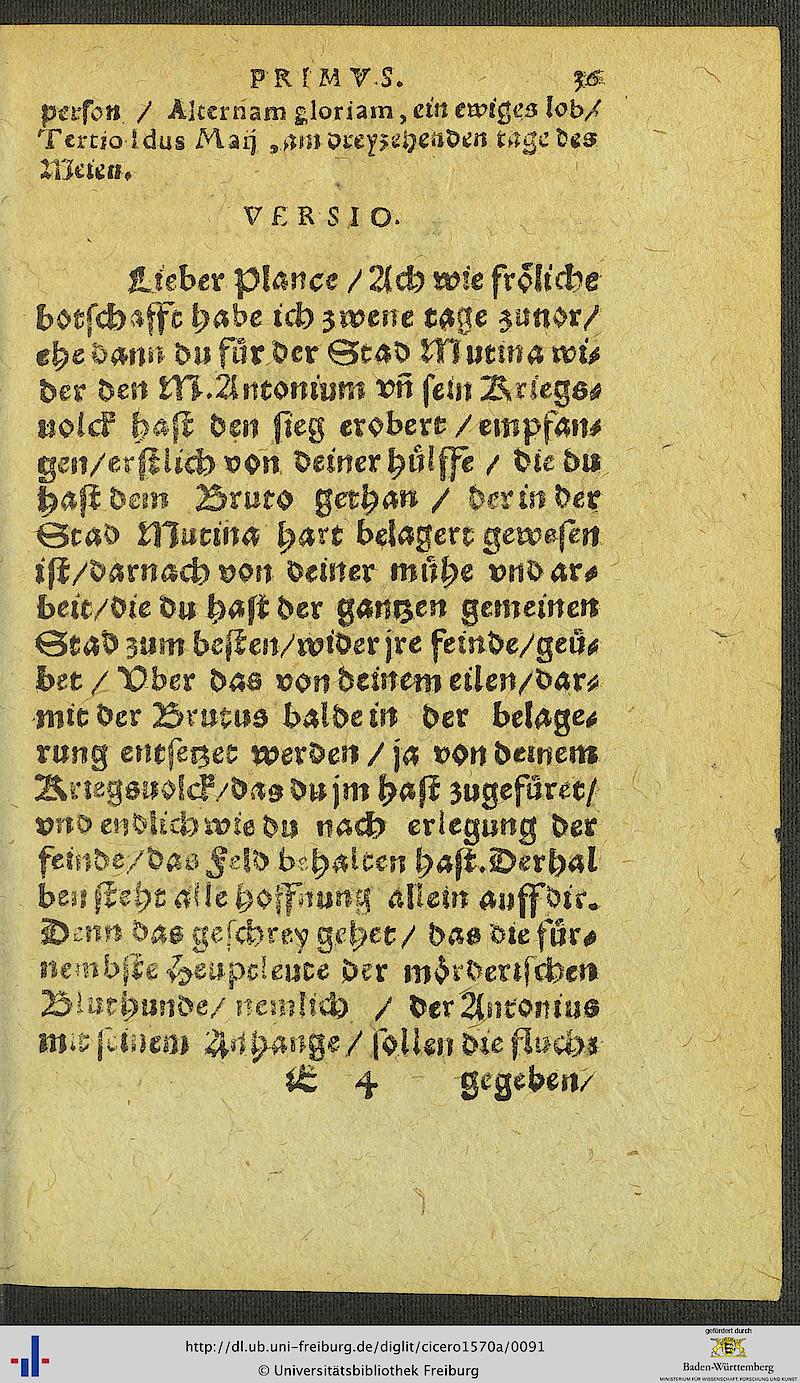 PRIMVS. 36
person / Alternam gloriam, ein ewiges lob/
Tertio Idus Maij, am dreyzehenden tage des
Meien.
VERSIO.
Lieber Plance / Ach wie frőliche
botschafft habe ich zwene tage zuuor/
ehe dann du für der Stad Mutina wi⸗
der den M. Antonium vñ sein Kriegs⸗
uolck hast den sieg erobert / empfan⸗
gen/erstlich von deiner hülffe / die du
hast dem Bruto gethan / der in der
Stad Mutina hart belagert gewesen
ist/darnach von deiner mühe vnd ar⸗
beit/die du hast der gantzen gemeinen
Stad zum besten/wider jre feinde/geü⸗
bet / Vber das von deinem eilen/dar⸗
mit der Brutus balde in der belage⸗
rung entsetzet werden / ja von deinem
Kriegsuolck/das du jm hast zugefüret/
vnd endlich wie du nach erlegung der
feinde/das Feld behalten hast. Derhal
ben steht alle hoffnung allein auff dir.
Denn das geschrey gehet / das die für⸗
nembste Heuptleute der mörderischen
Bluthunde/ nemlich / der Antonius
mit seinem Anhange / sollen die fluchs
E 4 gegeben/
http://dl.ub.uni-freiburg.de/diglit/cicero1570a/0091
© Universitätsbibliothek Freiburg
gefördert durch
Baden-Württemberg
MINISTERIUM FÜR WISSENSCHAFT, FORSCHUNG UND KUNST